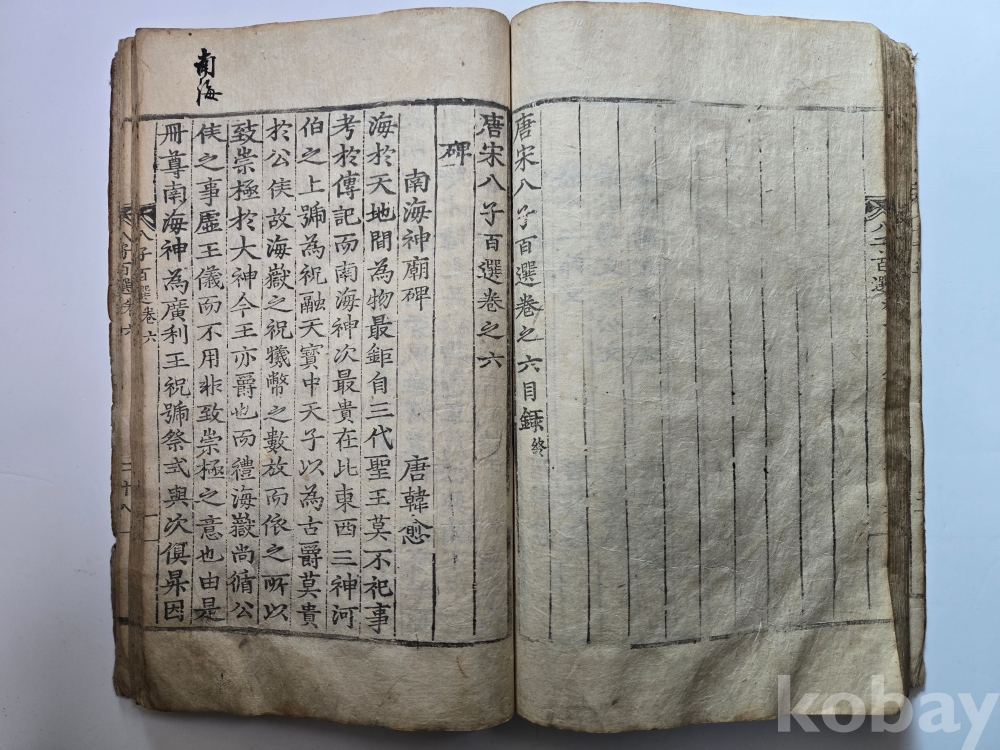 唐宋八子百選卷之六目録終
唐宋八子百選卷之六
碑
南海神廟碑 唐韓愈
海於天地間為物最鉅自三代聖王莫不祀事
考於傳記而南海神次最貴在比東西三神河
伯之上號為祝融天寶中天子以為古爵莫貴
於公侯故海嶽之祝犧幣之數放而依之所以
致崇極於大神今王亦爵也而禮海嶽尚循公
侯之事虛王儀而不用非致崇極之意也由是
冊尊南海神為廣利王祝號祭式與次俱昇因
南海
八子百選卷六
八子百選卷六
二十八
kobay